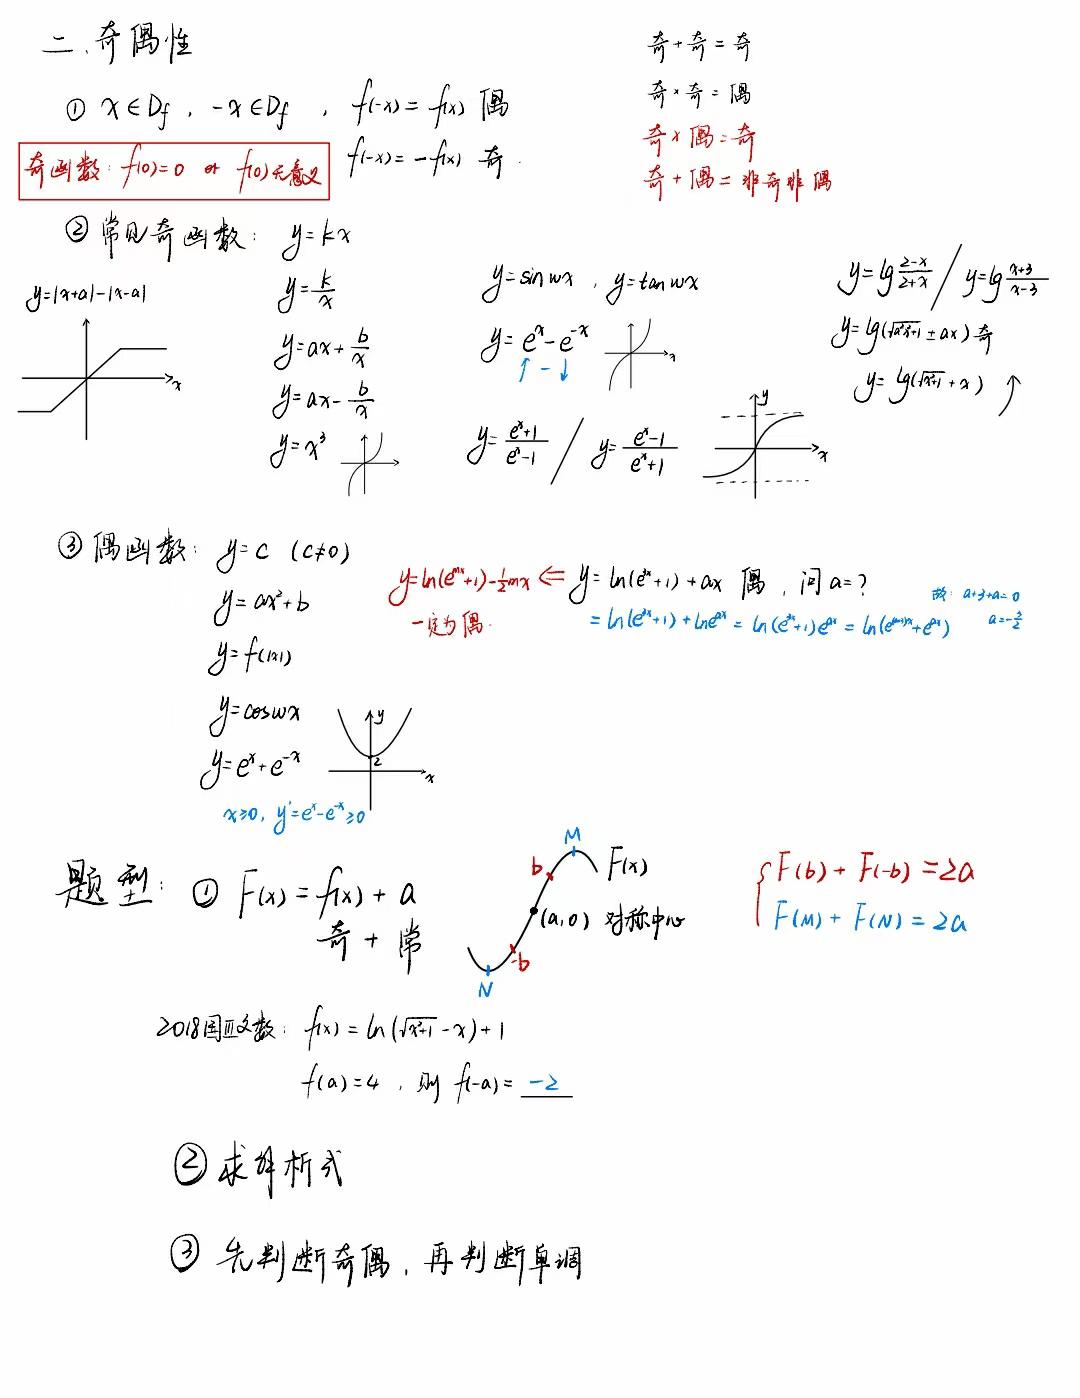 二、奇偶性
奇+奇=奇
奇×奇=偶
奇×偶=奇
奇+偶=非奇非偶
① x∈Df , -x∈Df , f(-x)=f(x) 偶
f(-x)=-f(x) 奇.
奇函数: f(0)=0 or f(0)无意义
② 常见奇函数: y=kx
y=|x+a|-|x-a|
x
y=k/x
y=ax+b/x
y=ax-b/x
y=x³
y=sinwx , y=tanwx
y=eˣ-e⁻ˣ
↑ - ↓
x
y=(eˣ+1)/(eˣ-1) / y=(eˣ-1)/(eˣ+1)
y
x
y=lg (2-x)/(2+x) / y=lg (x+3)/(x-3)
y=lg(√(a²x²+1) ± ax) 奇
y=lg(√(x²+1)+x) ↑
③ 偶函数: y=c (c≠0)
y=ax²+b
y=f(|x|)
y=coswx
y=eˣ+e⁻ˣ
x≥0, y'=eˣ-e⁻ˣ≥0
y
2
x
y=ln(eᵐˣ+1)-½mx ⇐ y=ln(e³ˣ+1)+ax 偶, 问a=?
一定为偶.
=ln(e³ˣ+1)+lneᵃˣ=ln(e³ˣ+1)eᵃˣ=ln(e⁽ᵃ⁺³⁾ˣ+eᵃˣ)
故: a+3+a=0
a=-3/2
题型: ① F(x)=f(x)+a
奇+常
M
b
F(x)
(a,0) 对称中心
-b
N
F(b)+F(-b)=2a
F(M)+F(N)=2a
2018国Ⅲ文数: f(x)=ln(√(x²+1)-x)+1
f(a)=4 , 则 f(-a)= -2
② 求解析式
③ 先判断奇偶, 再判断单调